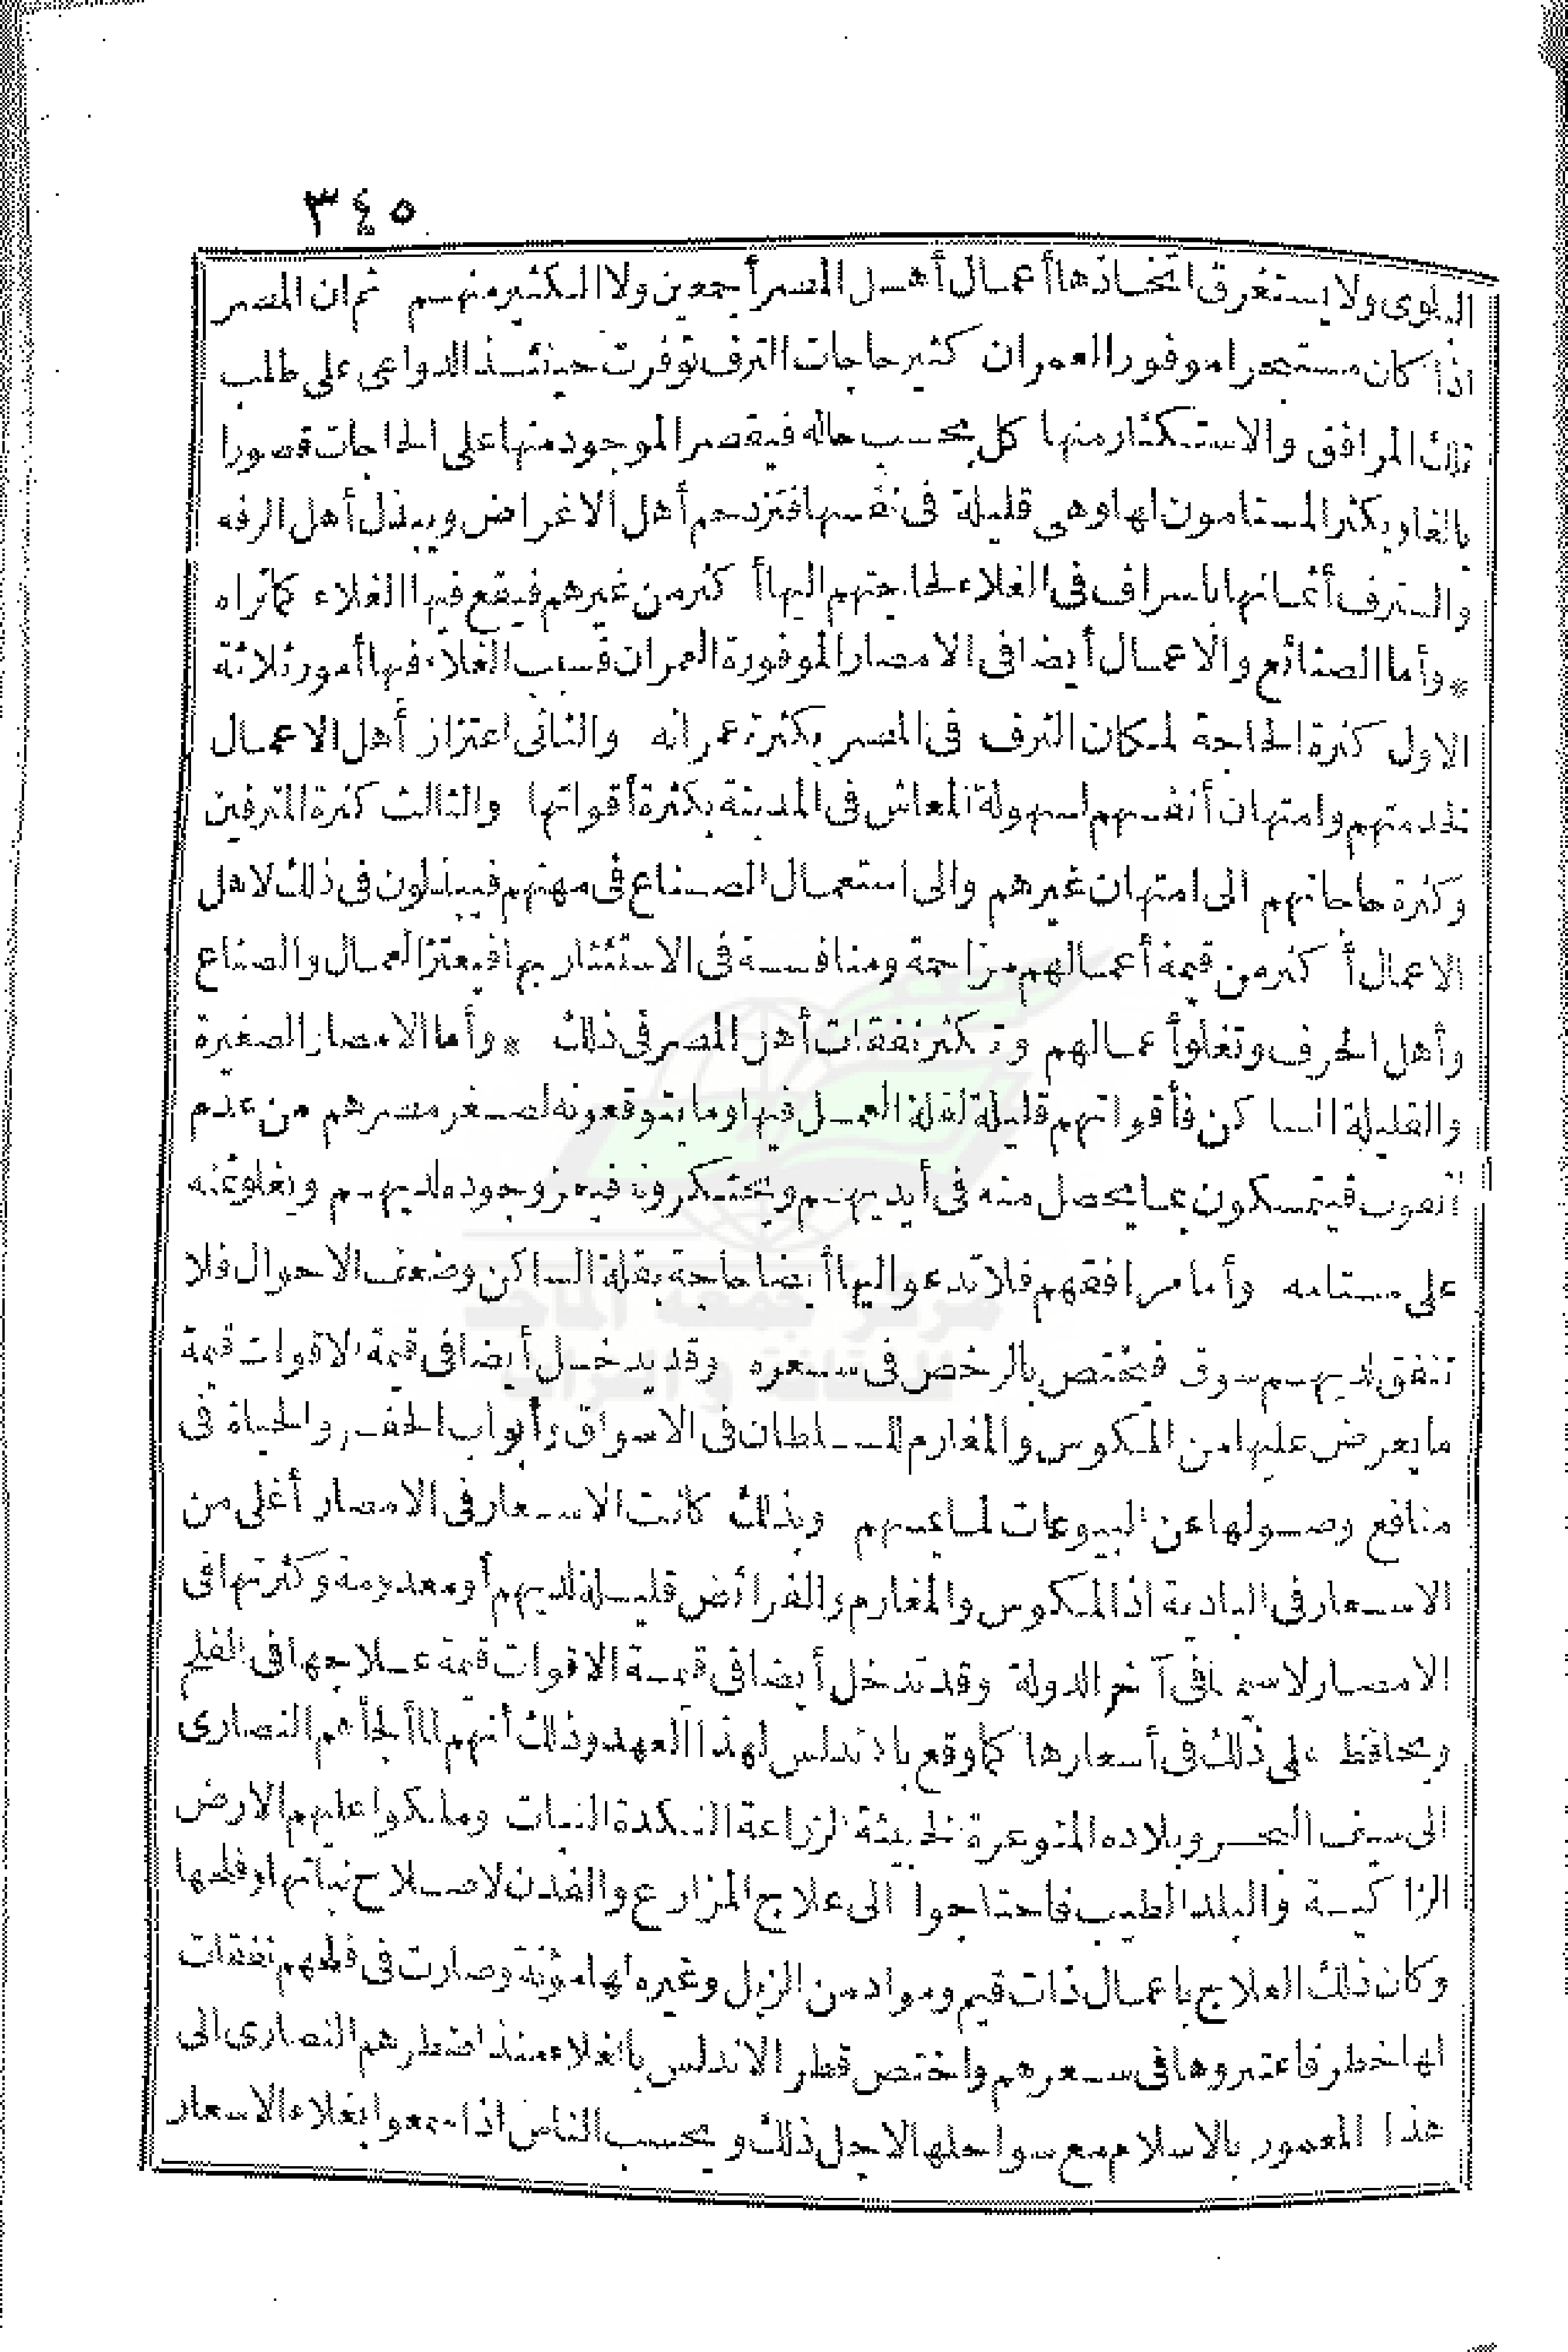 ٣٤٥
البلوى ولا يستغرق اتخاذها أعمال أهل المصر أجمعين ولا الكثير منهم ثم ان المصر
اذا كان مستبحرا موفور العمران كثير حاجات الترف توفرت حينئذ الدواعى على طلب
تلك المرافق والاستكثار منها كل بحسب حاله فيقصر الموجود منها على الحاجات قصورا
بالغا ويكثر المستامون لها وهى قليلة فى نفسها فتزدحم أهل الاغراض ويبذل أهل الرفه
والترف أثمانها باسراف فى الغلاء لحاجتهم اليها أكثر من غيرهم فيقع فيها الغلاء كما تراه
* وأما الصنائع والاعمال أيضا فى الامصار الموفورة العمران فسبب الغلاء فيها أمور ثلاثة
الاول كثرة الحاجة لمكان الترف فى المصر بكثرة عمرانه والثانى اعتزاز أهل الاعمال
لخدمتهم وامتهان أنفسهم لسهولة المعاش فى المدينة بكثرة أقواتها والثالث كثرة المترفين
وكثرة حاجاتهم الى امتهان غيرهم والى استعمال الصناع فى مهنهم فيبذلون فى ذلك لاهل
الاعمال أكثر من قيمة أعمالهم مزاحمة ومنافسة فى الاستئثار بها فيعتز العمال والصناع
وأهل الحرف وتغلو أعمالهم وتكثر نفقات أهل المصر فى ذلك * وأما الامصار الصغيرة
والقليلة الساكن فأقواتهم قليلة لقلة العمل فيها وما يتوقعونه لصغر مصرهم من عدم
القوت فيتمسكون بما يحصل منه فى أيديهم ويحتكرونه فيعز وجوده لديهم ويغلو ثمنه
على مستامه وأما مرافقهم فلا تدعو اليها أيضا حاجة بقلة الساكن وضعف الاحوال فلا
تنفق لديهم سوق فيختص بالرخص فى سعره وقد يدخل أيضا فى قيمة الاقوات قيمة
ما يعرض عليها من المكوس والمغارم للسلطان فى الاسواق وأبواب الحفر والحياة فى
منافع وصولها عن البيوعات لما يمسهم وبذلك كانت الاسعار فى الامصار أغلى من
الاسعار فى البادية اذ المكوس والمغارم والفرائض قليلة لديهم أو معدومة وكثرتها فى
الامصار لا سيما فى آخر الدولة وقد تدخل أيضا فى قيمة الاقوات قيمة علاجها فى الفلح
ويحافظ على ذلك فى أسعارها كما وقع بالاندلس لهذا العهد وذلك أنهم لما ألجأهم النصارى
الى سيف البحر وبلاده المتوعرة الخبيثة الزراعة النكدة النبات وملكوا عليهم الارض
الزاكية والبلد الطيب فاحتاجوا الى علاج المزارع والفدن لاصلاح نباتها وفلحها
وكان ذلك العلاج باعمال ذات قيم ومواد من الزبل وغيره لها مؤنة وصارت فى فلحهم نفقات
لها خطر فاعتبروها فى سعرهم واختص قطر الاندلس بالغلاء منذ اضطرهم النصارى الى
هذا المعمور بالاسلام مع سواحلها لاجل ذلك ويحسب الناس اذا سمعوا بغلاء الاسعار
مركز جمعة الماجد
للثقافة والتراث